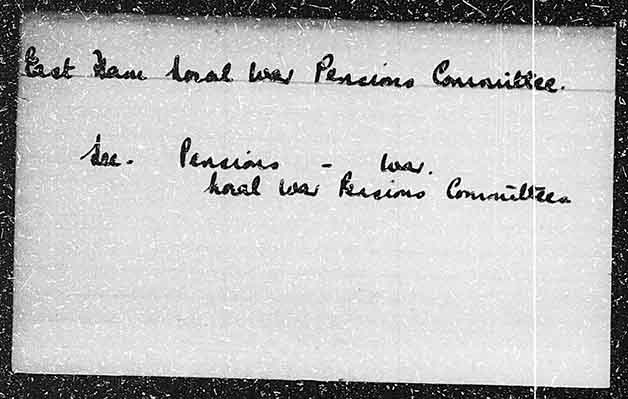 East Ham Local War Pensions Committee.
See. Pensions - War.
Local War Pensions Committees